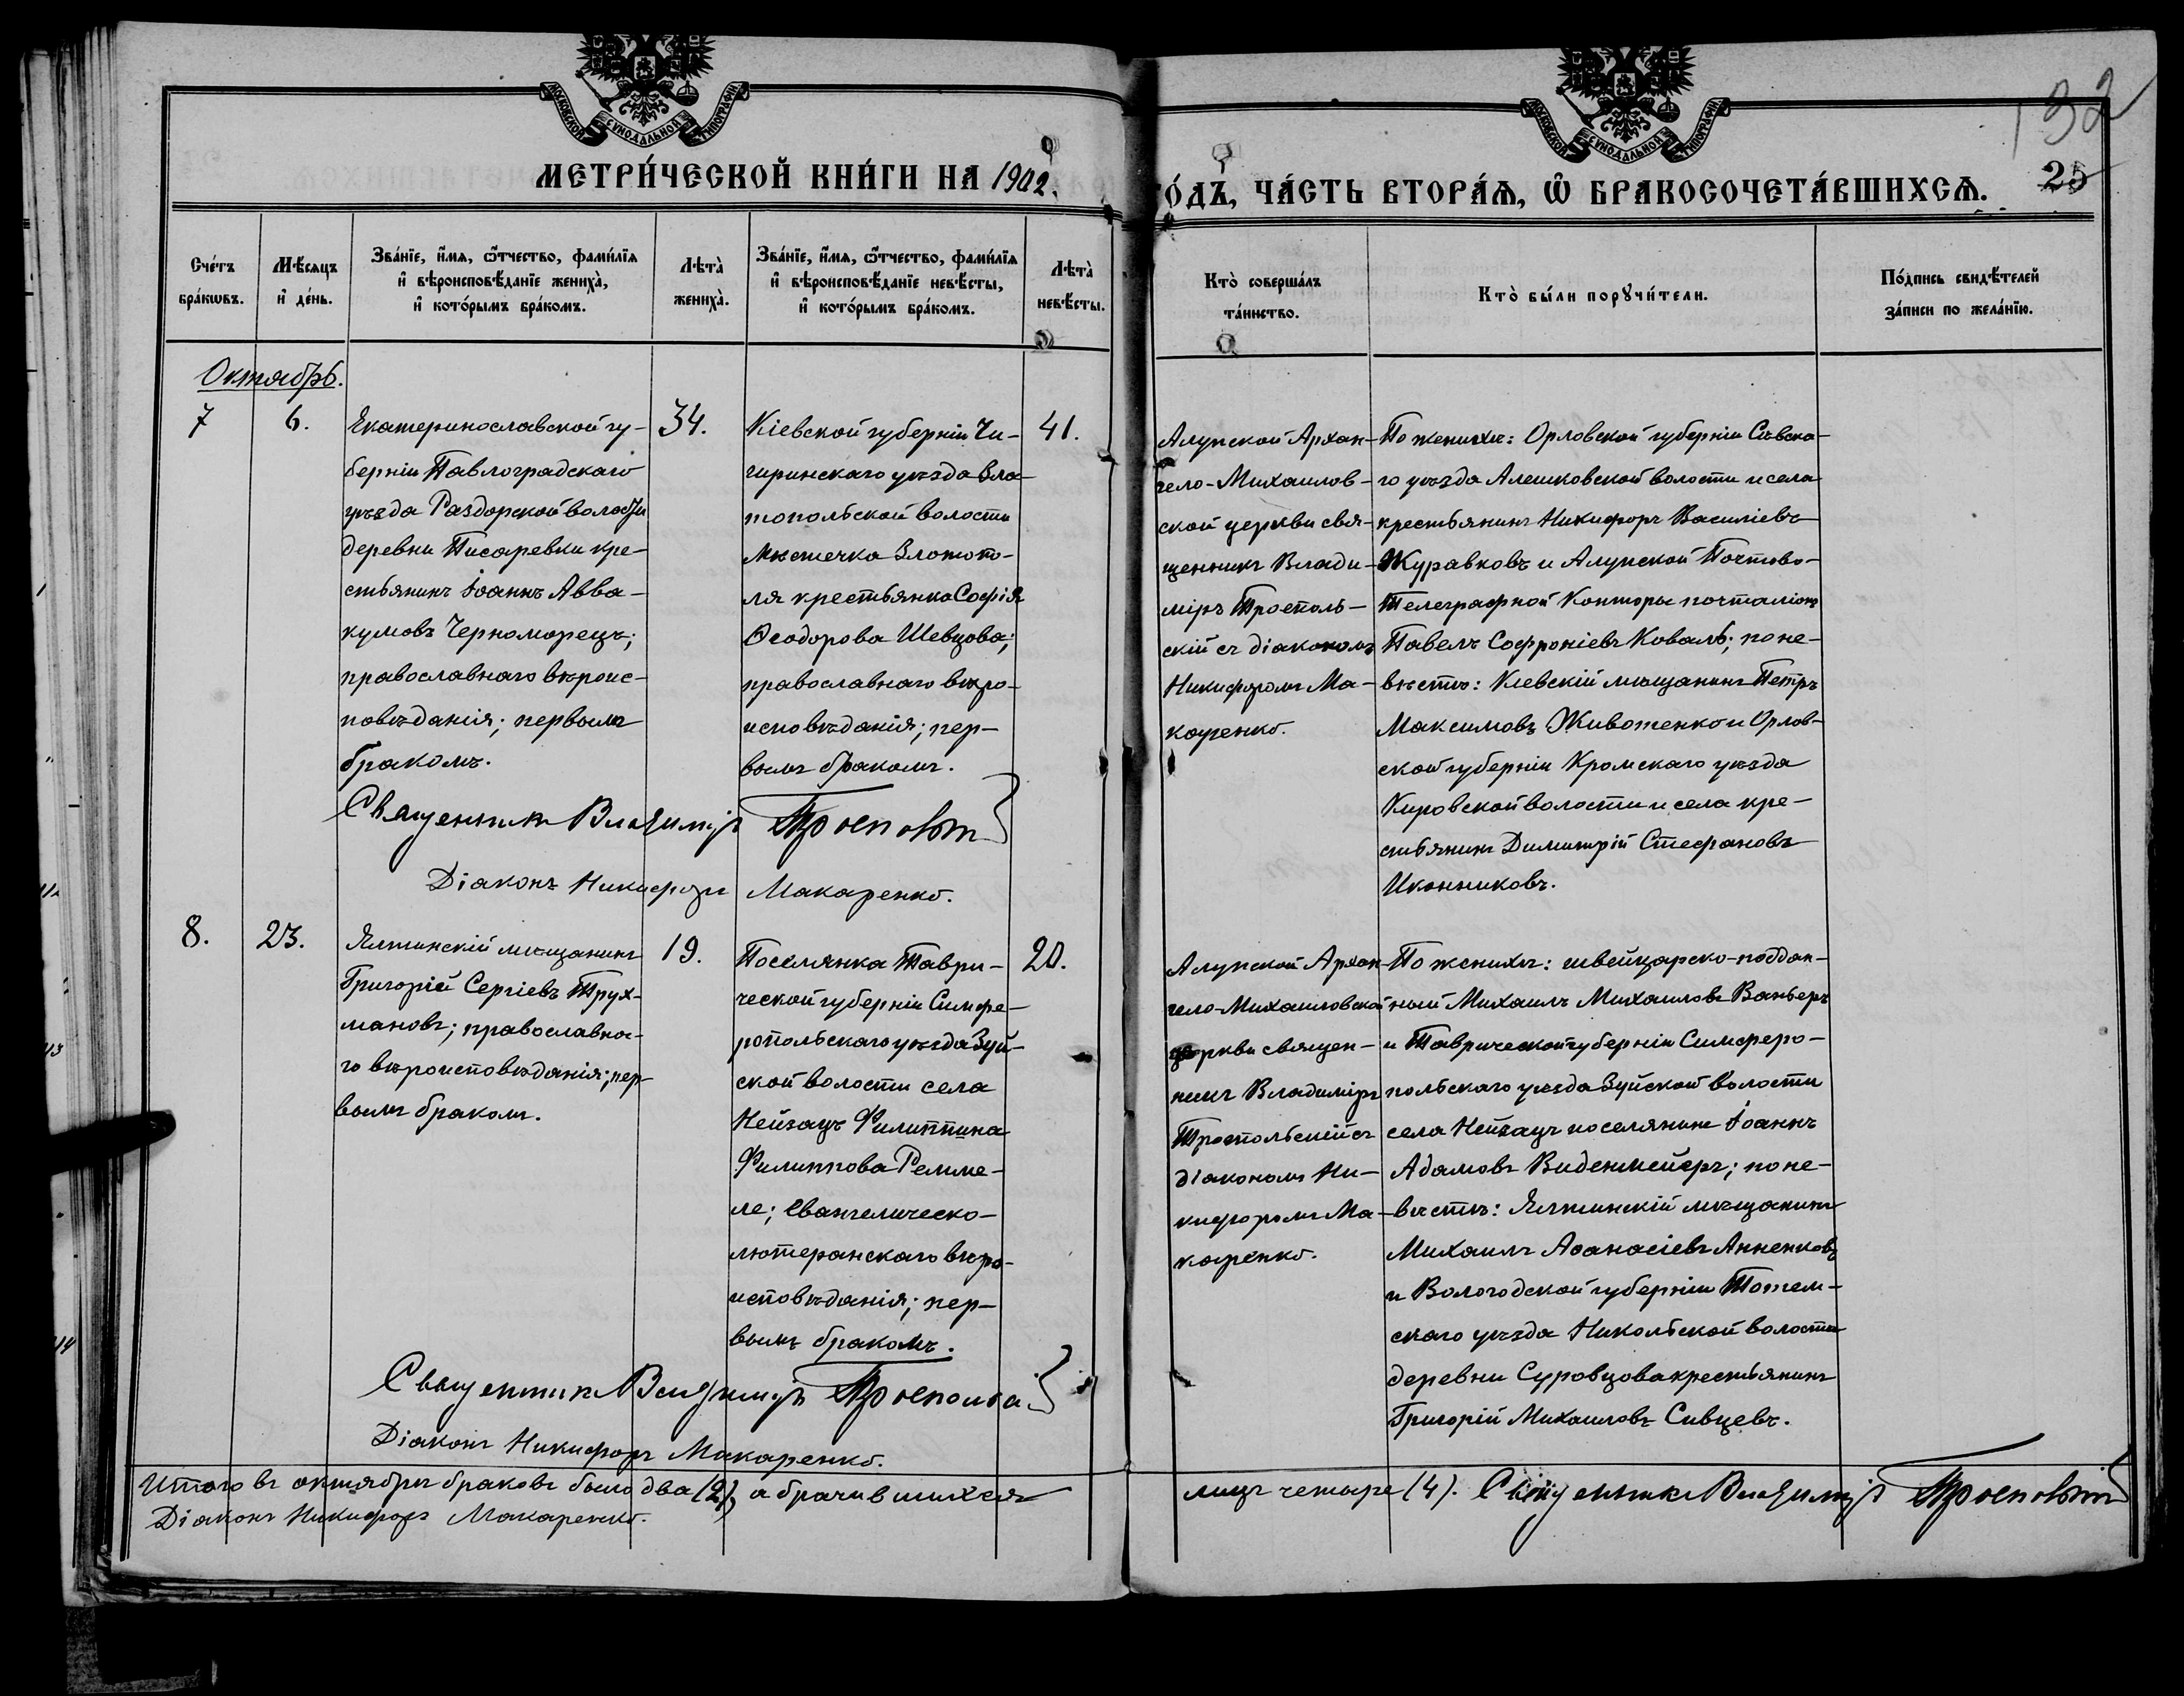 МОСКОВСКОЙ СѴНОДАЛЬНОЙ ТИПОГРАФІИ
МОСКОВСКОЙ СѴНОДАЛЬНОЙ ТИПОГРАФІИ
132
МЕТРИ́ЧЕСКОЙ КНИ́ГИ НА 1902.
ГО́ДЪ, ЧА́СТЬ ВТОРА́Ѧ, Ѡ҆ БРАКОСОЧЕТА́ВШИХСѦ.
25
Сче́тъ
бра́кѡвъ.
Мѣ́сяцъ
и҆ де́нь.
Зва́нїе, и҆́мя, ѻ҆́тчество, фами́лїя
и҆ вѣроисповѣ́данїе жениха̀,
и҆ кото́рымъ бра́комъ.
Лѣта̀
жениха̀.
Зва́нїе, и҆́мя, ѻ҆́тчество, фами́лїя
и҆ вѣроисповѣ́данїе невѣ́сты,
и҆ кото́рымъ бра́комъ.
Лѣта̀
невѣ́сты.
Кто̀ соверша́лъ
та́инство.
Кто̀ бы́ли порꙋчи́тели.
По́дпись свидѣ́телей
за́писи по жела́нїю.
Октябрь.
7
6.
Екатеринославской гу-
берніи Павлоградскаго
уѣзда Раздорской волости
деревни Писаревки кре-
стьянинъ Іоаннъ Авва-
кумовъ Черноморецъ;
православнаго вѣроис-
повѣданія; первымъ
бракомъ.
34.
Кіевской губерніи Чи-
гиринскаго уѣзда Зла-
топольской волости
мѣстечка Златопо-
ля крестьянка Софія
Ѳеодорова Шевцова;
православнаго вѣро-
исповѣданія; пер-
вымъ бракомъ.
41.
Алупской Архан-
гело-Михаилов-
ской церкви свя-
щенникъ Влади-
міръ Троеполь-
скій съ діакономъ
Никифоромъ Ма-
каренко.
По женихѣ: Орловской губерніи Сѣвска-
го уѣзда Алешковской волости и села
крестьянинъ Никифоръ Василіевъ
Журавковъ и Алупской Почтово-
Телеграфной Конторы почталіонъ
Павелъ Софроніевъ Коваль; по не-
вѣстѣ: Кіевскій мѣщанинъ Петръ
Максимовъ Животенко и Орлов-
ской губерніи Кромскаго уѣзда
Кировской волости и села кре-
стьянинъ Димитрій Стефановъ
Иконниковъ.
Священникъ Владиміръ Троепольскій
Діаконъ Никифоръ Макаренко.
8.
23.
Ялтинскій мѣщанинъ
Григорій Сергіевъ Трух-
мановъ; православна-
го вѣроисповѣданія; пер-
вымъ бракомъ.
19.
Поселянка Таври-
ческой губерніи Симфе-
ропольскаго уѣзда Зуй-
ской волости села
Нейзацъ Филиппина
ФилипповаРемме-
ле; Евангелическо-
лютеранскаго вѣро-
исповѣданія; пер-
вымъ бракомъ.
20.
Алупской Архан-
гело-Михаиловской
церкви священ-
никъ Владиміръ
Троепольскій съ
діакономъ Ни-
кифоромъ Ма-
каренко.
По женихѣ: швейцарско-поддан-
ный Михаилъ Михаиловъ Ваньеръ
и Таврической губерніи Симферо-
польскаго уѣзда Зуйской волости
села Нейзацъ поселянинъ Іоаннъ
Адамовъ Виденмейеръ; по не-
вѣстѣ: Ялтинскій мѣщанинъ
Михаилъ Аѳанасіевъ Анненковъ
и Вологодской губерніи Тотем-
скаго уѣзда Никольской волости
деревни Суровцова крестьянинъ
Григорій Михаиловъ Сивцевъ.
Священникъ Владиміръ Троепольскій
Діаконъ Никифоръ Макаренко.
Итого въ октябрѣ браковъ было два (2), а брачившихся
лицъ четыре (4). Священникъ Владиміръ Троепольскій
Діаконъ Никифоръ Макаренко.